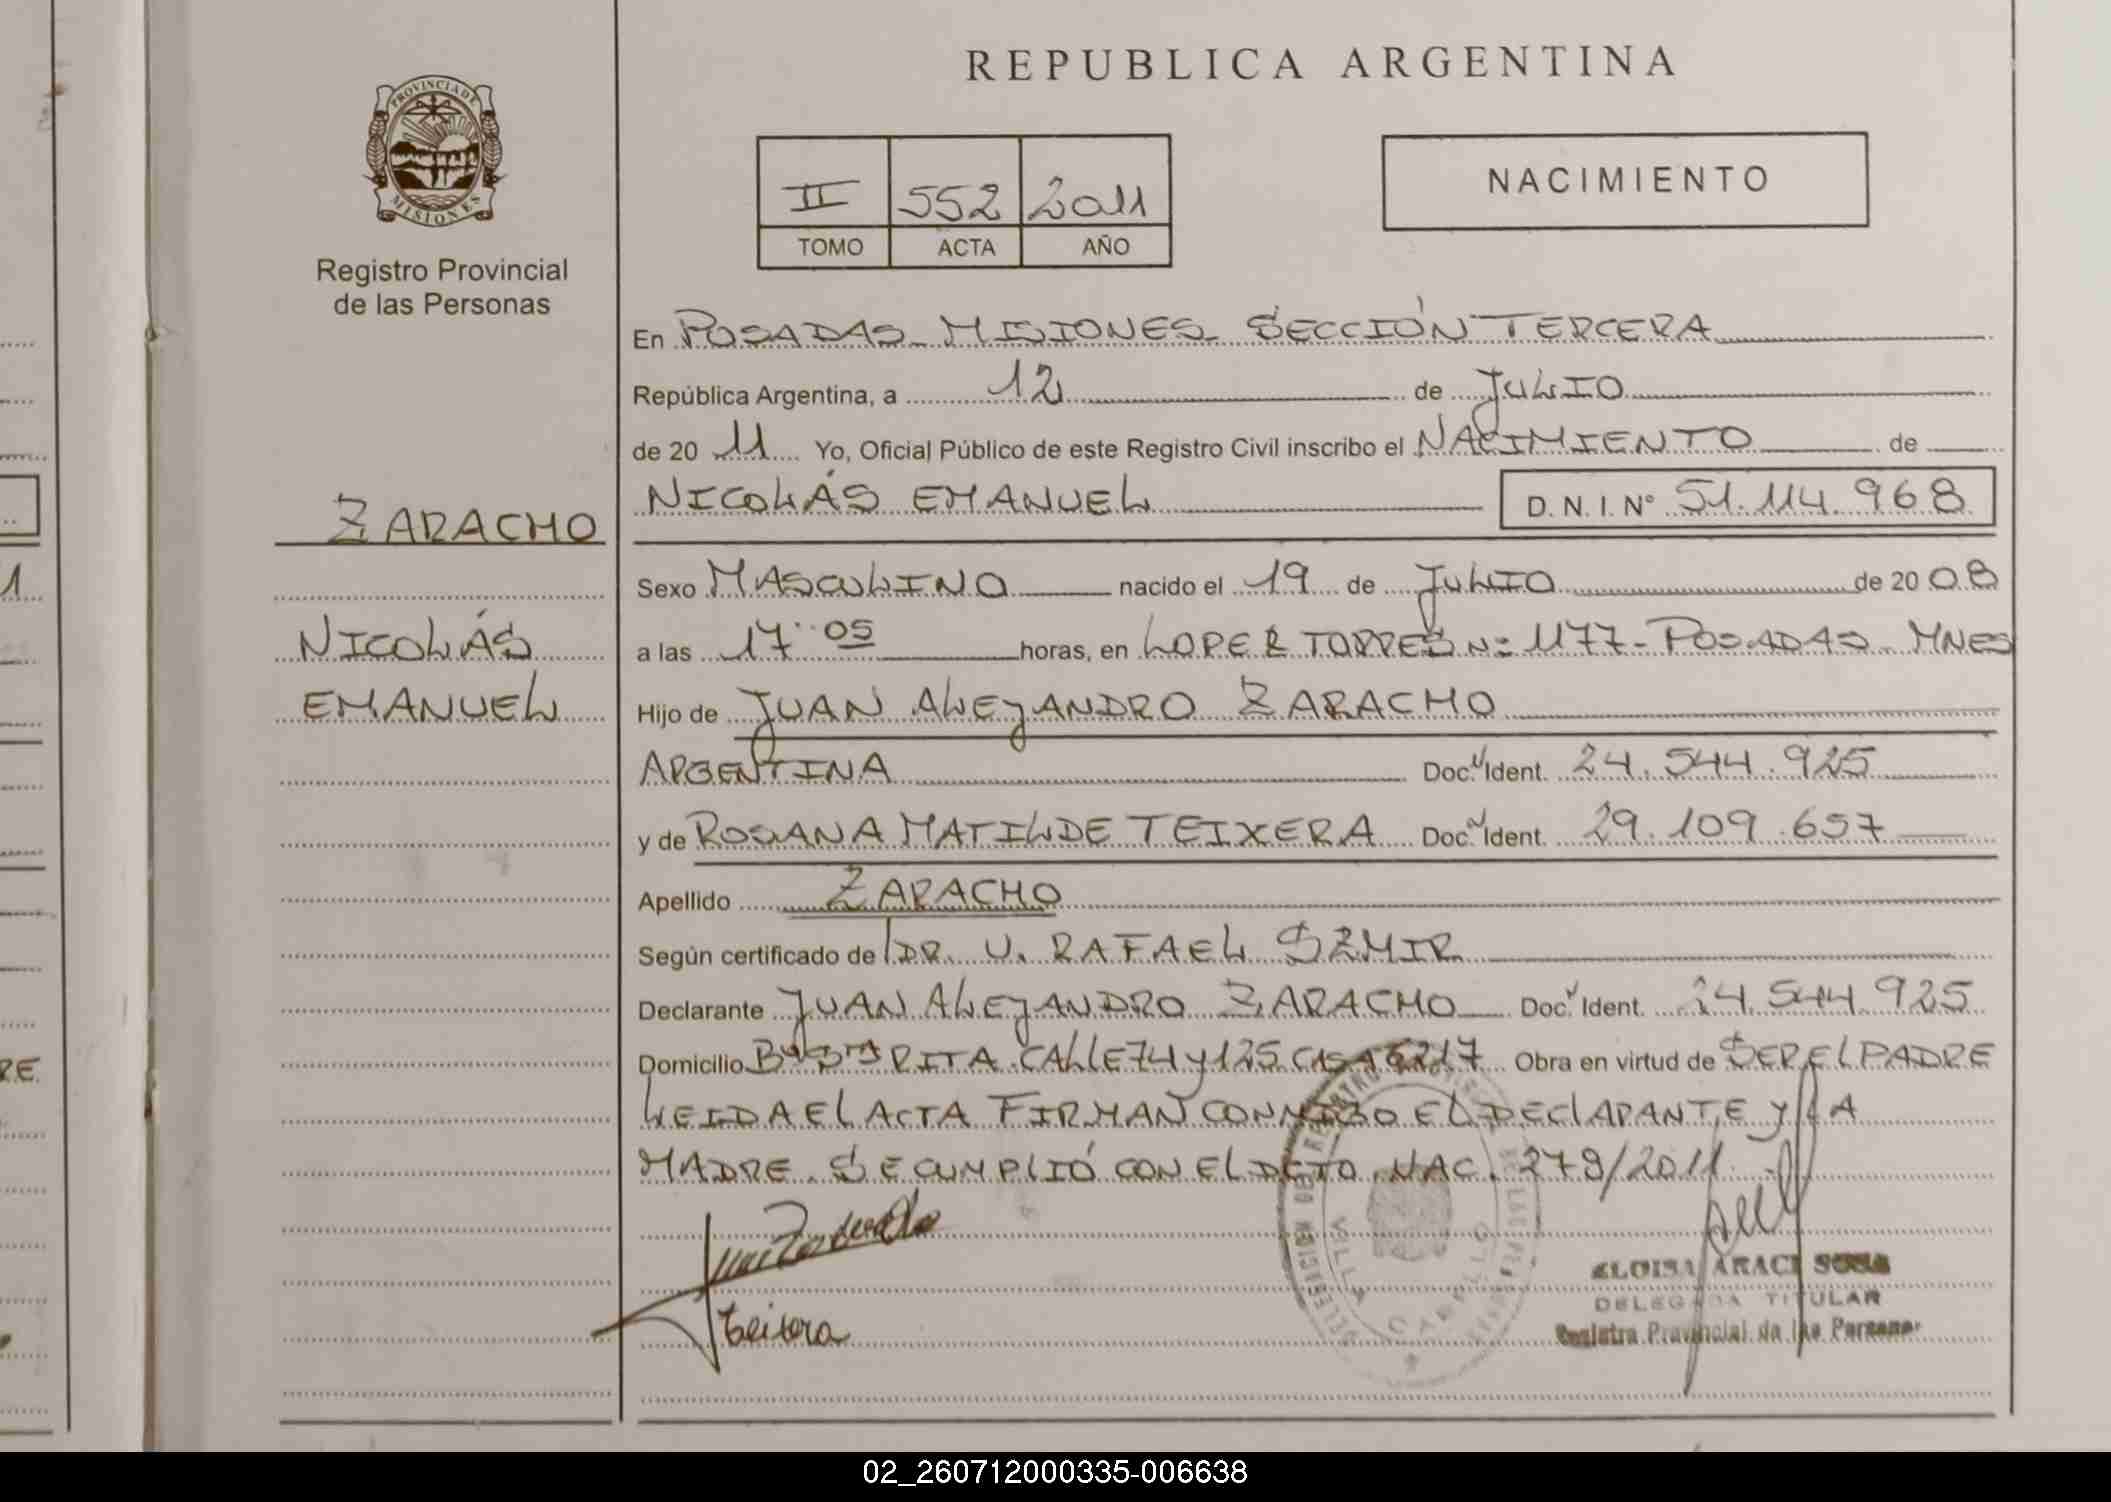 REPUBLICA ARGENTINA
PROVINCIA DE
MISIONES
Registro Provincial
de las Personas
II 552 2011
TOMO ACTA AÑO
NACIMIENTO
En POSADAS - MISIONES - SECCIÓN TERCERA
República Argentina, a 12 de JULIO
de 20 11 Yo, Oficial Público de este Registro Civil inscribo el NACIMIENTO de
NICOLÁS EMANUEL D. N. I. N° 51.114.968
ZARACHO
NICOLÁS
EMANUEL
Sexo MASCULINO nacido el 19 de JULIO de 20 08
a las 17:05 horas, en LOPEZ TORRES Nº 1177 - POSADAS - MNES
Hijo de JUAN ALEJANDRO ZARACHO
ARGENTINA Doc. Ident. 24.544.925
y de ROSANA MATILDE TEIXERA Doc. Ident. 29.109.657
Apellido ZARACHO
Según certificado de DR. U. RAFAEL SZMIR
Declarante JUAN ALEJANDRO ZARACHO Doc. Ident. 24.544.925
Domicilio Bº Sta RITA CALLE 74 y 125 CASA 6217 Obra en virtud de SER EL PADRE
LEIDA EL ACTA FIRMAN CONMIGO EL DECLARANTE Y LA
MADRE. SE CUMPLIÓ CON EL DCTO. NAC. 278/2011
Teixera
ELOISA ARACI SOSA
DELEGADA TITULAR
Registro Provincial de las Personas
02_260712000335-006638